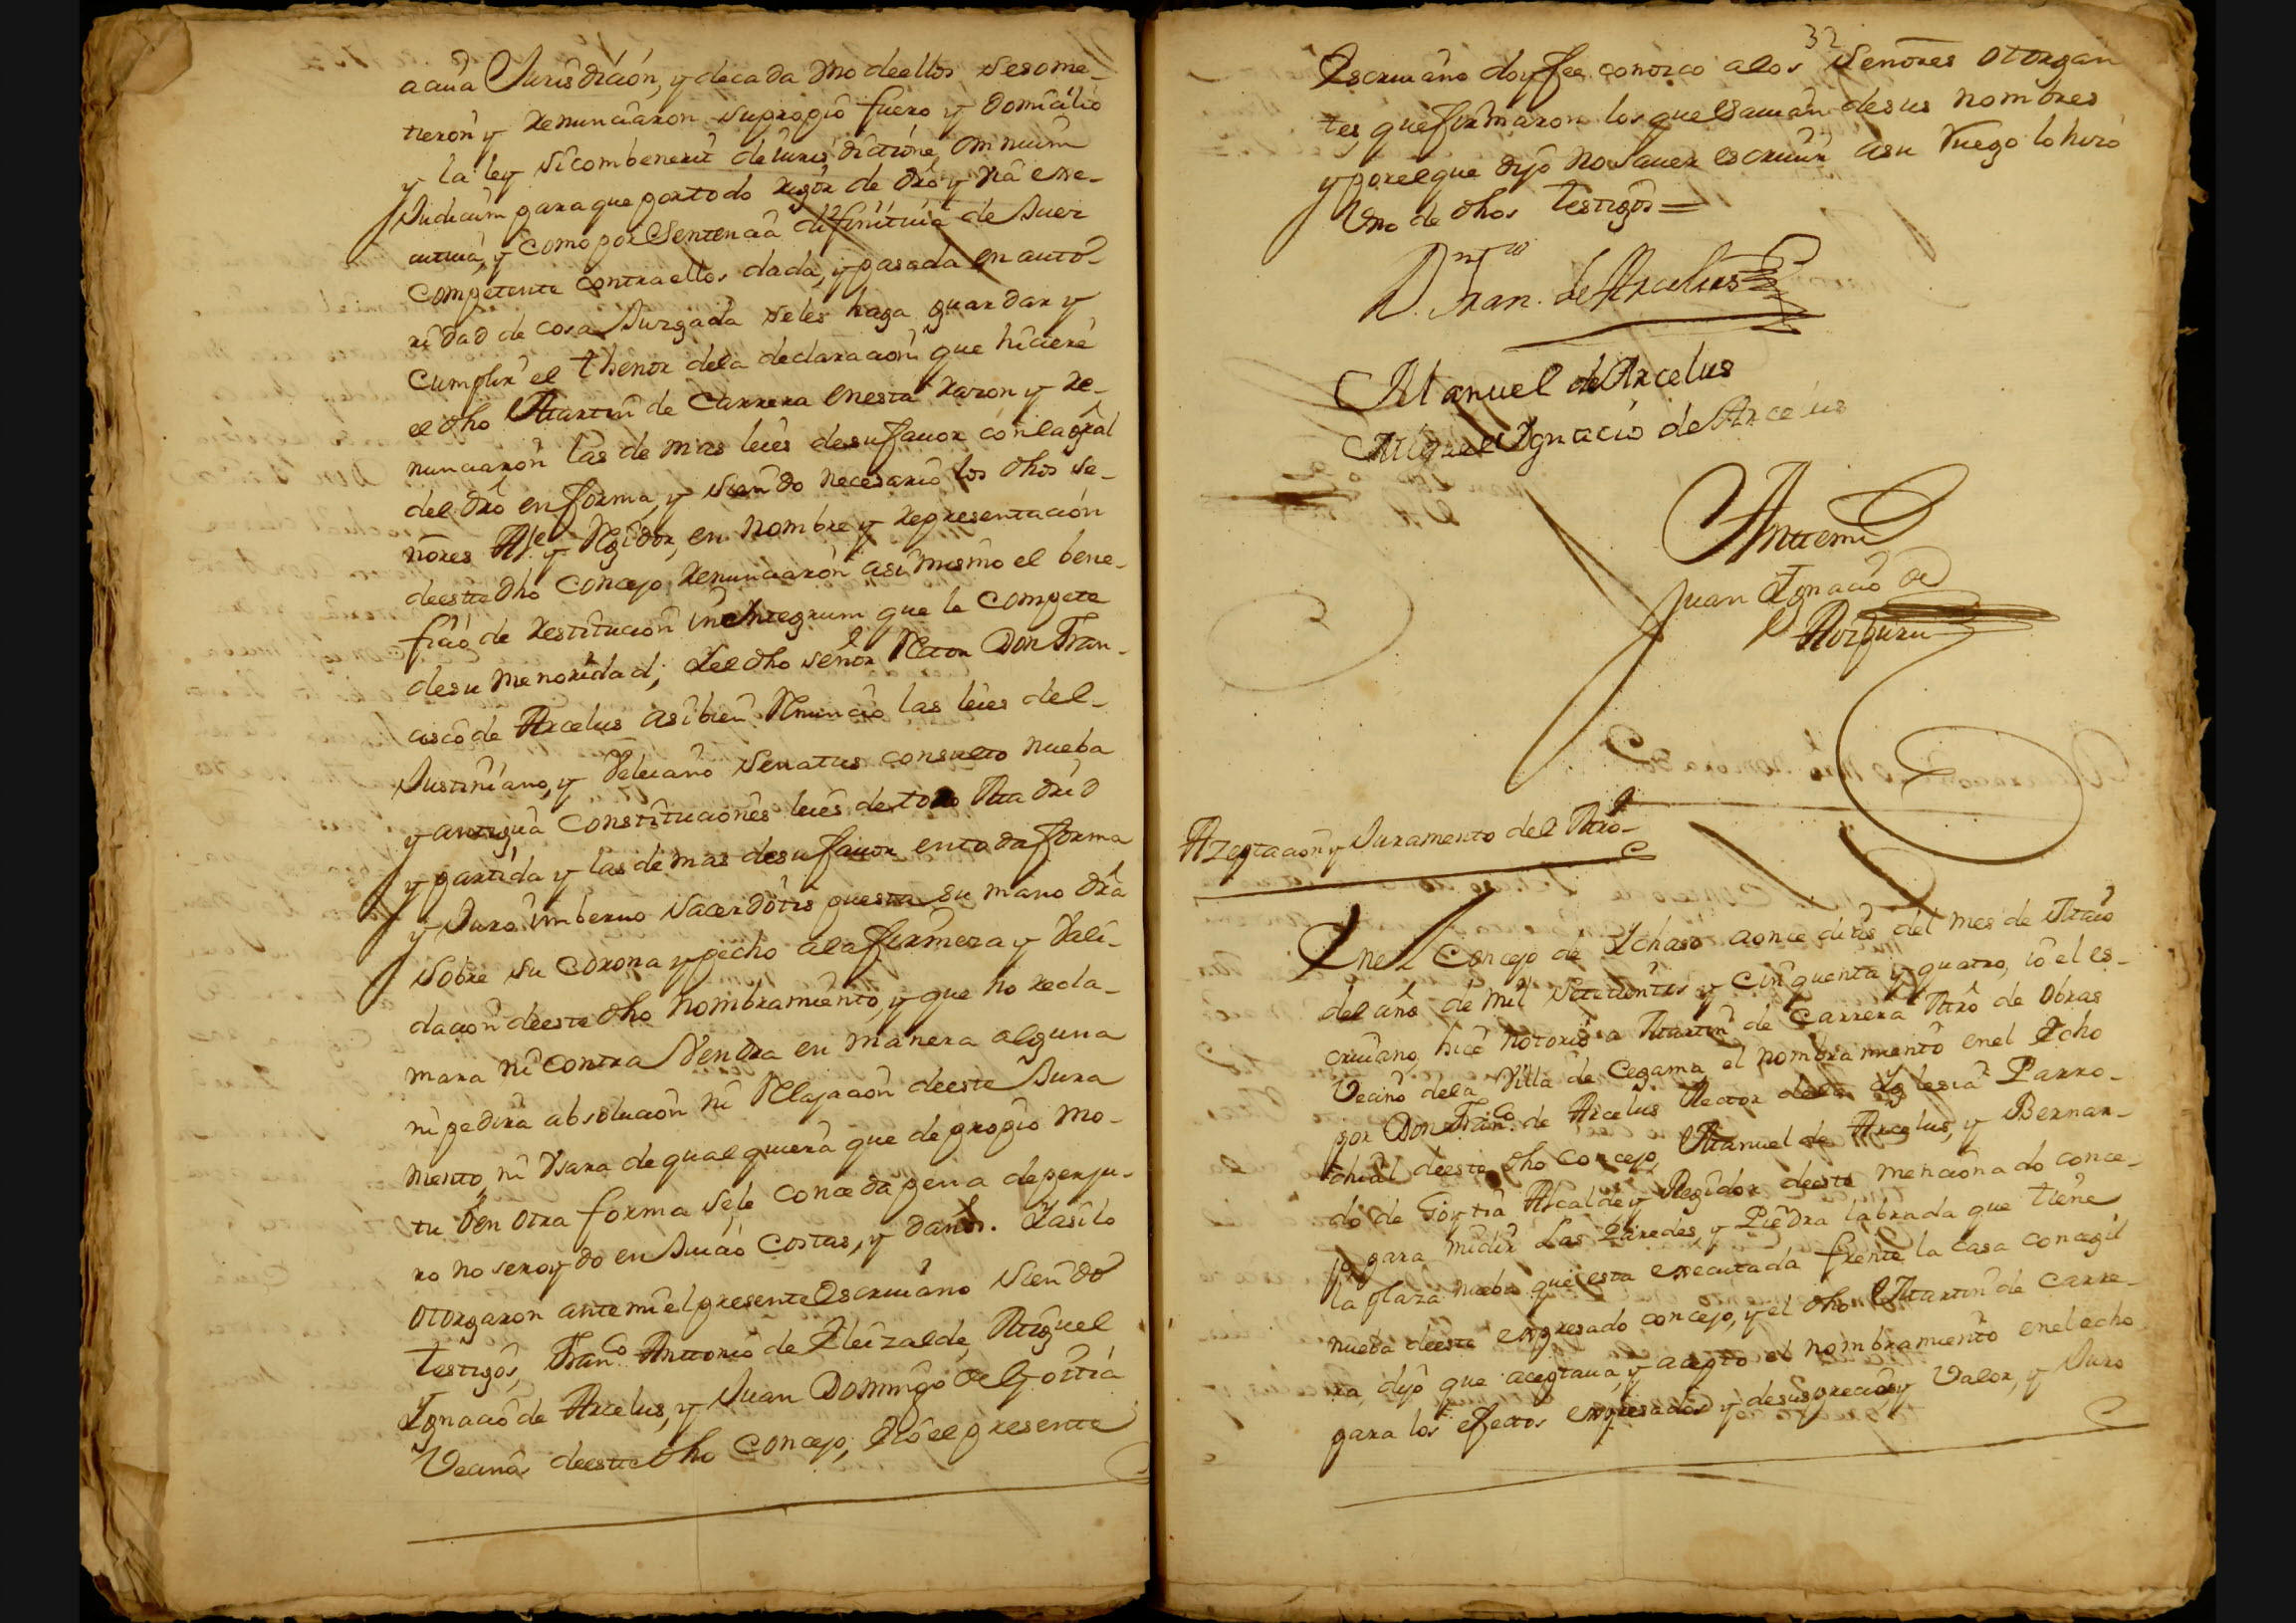 a cuia Jurisdicion, y de cada vno de ellos se some-
tieron y renunciaron su propio fuero y domicilio
y la ley si combenerit de iurisdictione, omnium
Judicum para que por todo rigor de dro y via exe-
cutiua, y como por Sentencia difinitiua de Juez
competente contra ellos dada, y pasada en auto-
ridad de cosa Juzgada se les haga guardar y
cumplir el thenor de la declaracion que hiciere
el dho Martin de Carrera en esta razon y re-
nunciaron las de mas leies de su fauor con la gral
del dro en forma, y siendo necesario los dhos Se-
ñores Alle y Regidor, en nombre y representacion
de este dho Concejo renunciaron asi mismo el bene-
ficio de restitucion in integrum que le compete
de su menoridad; Y el dho señor Rector Don Fran-
cisco de Arcelus asi bien Renuncio las leies del
Justiniano, y Veleiano Senatus consulto nueba
y antigua constituciones leies de toro Madrid
y partida y las de mas de su fauor en toda forma
y Juro imberuo Sacerdotis puesta su mano dra
sobre su Corona y pecho a la firmeza y Vali-
dacion de este dho nombramiento, y que no recla-
mara ni contra Vendra en manera alguna
ni pedira absolucion ni Relajacion de este Jura
mento, ni Vsara de qualquiera que de propio mo-
tu ô en otra forma se le conceda pena de perju-
ro no ser oydo en Juicio costas, y daños. Y asi lo
otorgaron ante mi el presente Escriuano siendo
testigos, Franco Anttonio de Eleizalde, Miguel
Ygnacio de Arcelus, y Juan Domingo de Goitia
Vecinos de este dho Concejo, E yo el presente
32
Escriuano doy fee conozco a los Señores otorgan
tes, que firmaron los que sauian de sus nombres
y por el que dijo no sauer escriuir a su ruego lo hizo
Vno de dhos testigos =
D. Fran. de Arcelus
Manuel de Arcelus
Miguel Ygnacio de Arcelus
Ante mi
Juan Ygnacio de
Aizpuru
Azeptacion y Juramento del Mro
En el Concejo de Ychaso a once dias del mes de Maio
del año de mil setecientos y cinquenta y quatro, io el es-
criuano, hice notorio a Martin de Carrera Mro de obras
Vecino de la Villa de Cegama el nombramiento en el Echo
por Don Franco de Arcelus Rector de la Yglesia Parro-
chial de este dho Concejo, Manuel de Arcelus, y Bernar-
do de Goytia Alcalde y Regidor de este mencionado conce-
jo para midir Las Paredes, y Piedra labrada que tiene
la plaza nueba que esta executada frente la casa concegil
nueba de este expresado concejo, y el dho Martin de Carre-
ra, dijo que aceptaua, y acepto el nombramiento en el echo
para los efectos expresados y de sus precios, y Valor, y Juro